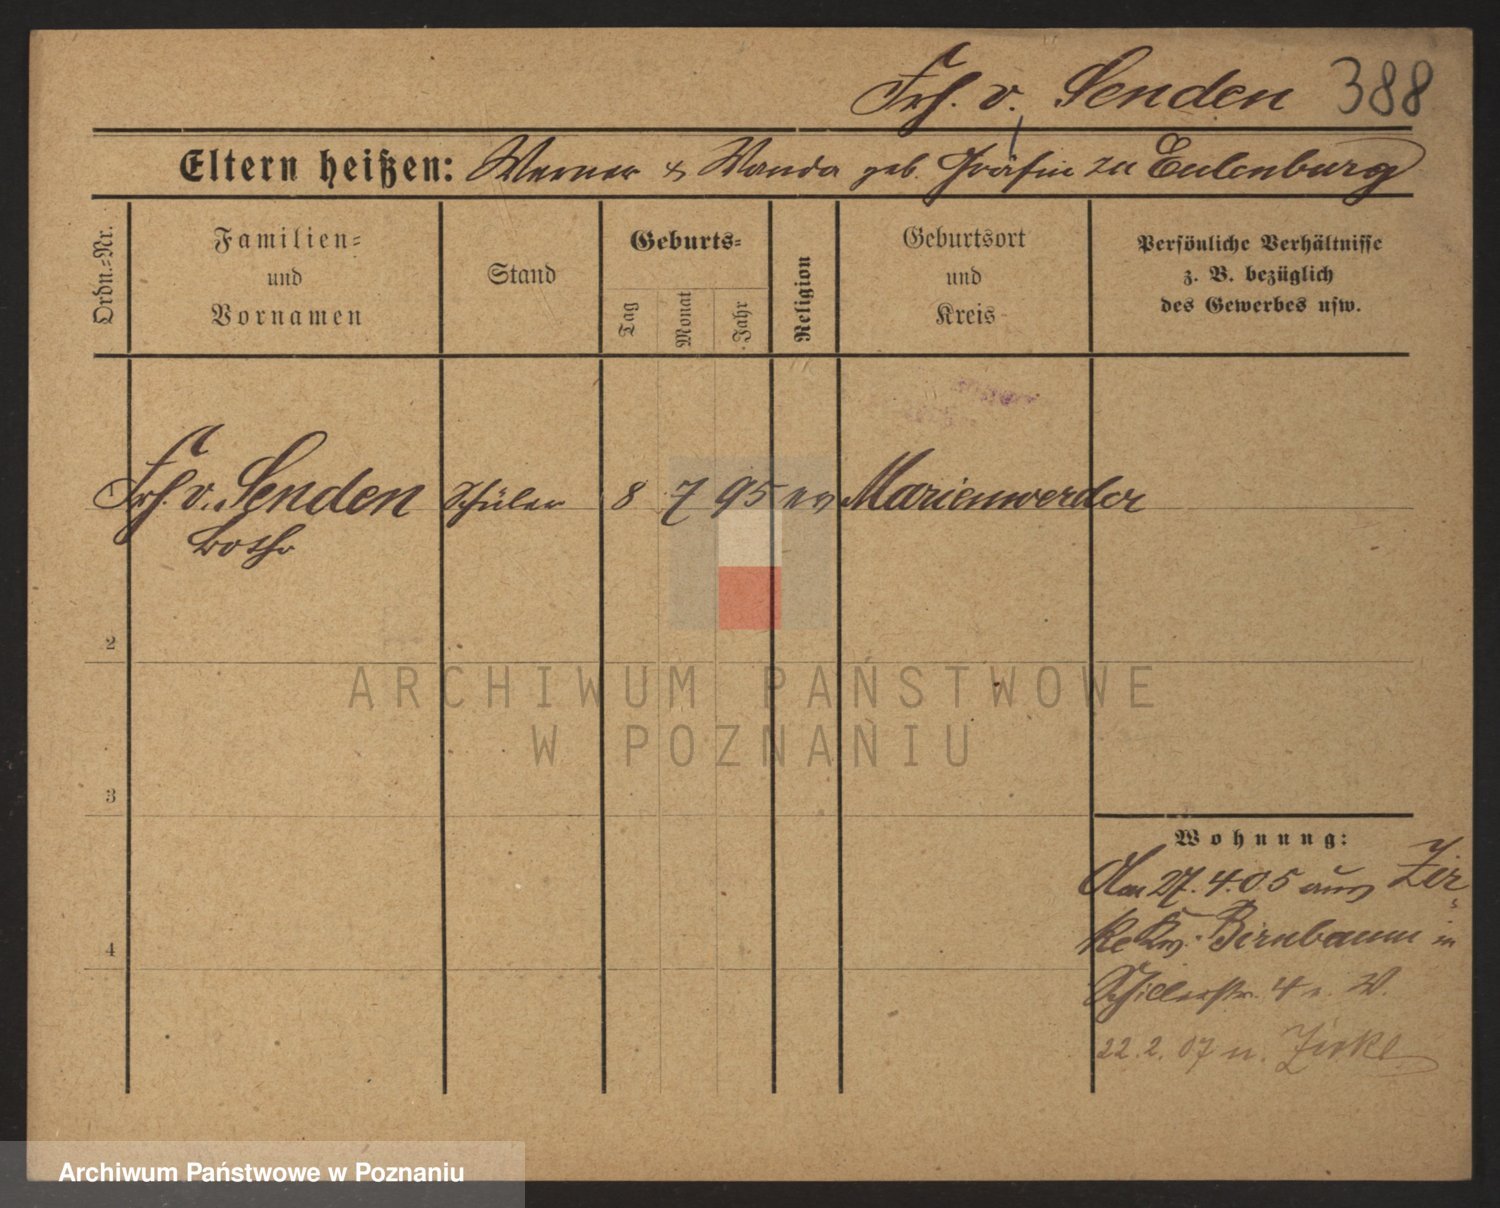 Frh. v. Senden 388
Eltern heißen: Werner & Wanda geb. Gräfin zu Eulenburg
Ordn.-Nr.
Familien-
und
Vornamen
Stand
Geburts-
Tag
Monat
Jahr
Religion
Geburtsort
und
Kreis
Persönliche Verhältnisse
z. B. bezüglich
des Gewerbes usw.
Frh. v. Senden Schüler 8 7 95 ev Marienwerder
Botho
2
ARCHIWUM PAŃSTWOWE
W POZNANIU
3
Wohnung:
Am 27.4.05 aus Zir-
ke Krs. Birnbaum in
4
Schillerstr. 4 W.
22.2.07 n. Zirke
Archiwum Państwowe w Poznaniu